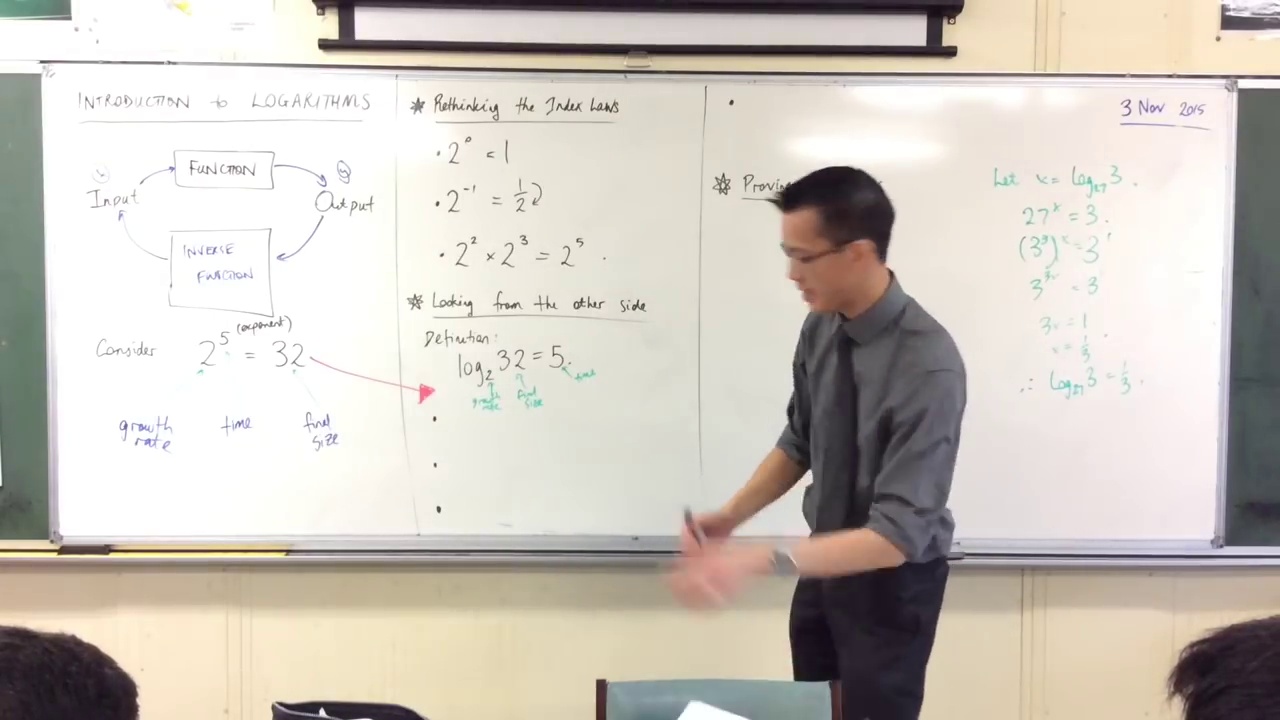 INTRODUCTION to LOGARITHMS
FUNCTION
Input
Output
INVERSE
FUNCTION
(exponent)
Consider 2⁵ = 32
growth
rate
time
final
size
Rethinking the Index Laws
• 2⁰ = 1
• 2⁻¹ = 1/2
• 2² × 2³ = 2⁵ .
Looking from the other side
Definition:
log₂ 32 = 5.
growth
rate
final
size
time
3 Nov 2015
Let x = log₂₇ 3 .
27ˣ = 3 .
(3³)ˣ = 3¹
3³ˣ = 3
3x = 1
x = 1/3 .
∴ log₂₇ 3 = 1/3 .